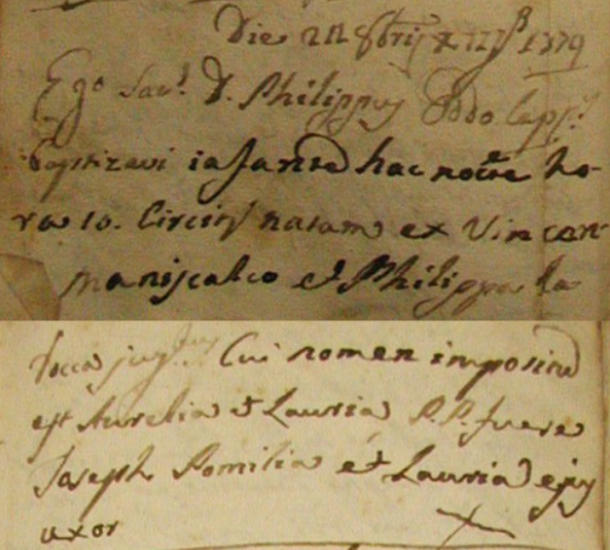 Die 21 8bris X 1779
Ego Sac.s D. Philippus Oddo Capp.s
baptizavi infante hac nocte ho-
ra 10. Circiter natam ex Vincen.
maniscalco et Philippa la
rocca jug. Cui nomen imposind
est Aurelia et Lauria P.P. fuere
Joseph Pomilia et Lauria ejus
uxor